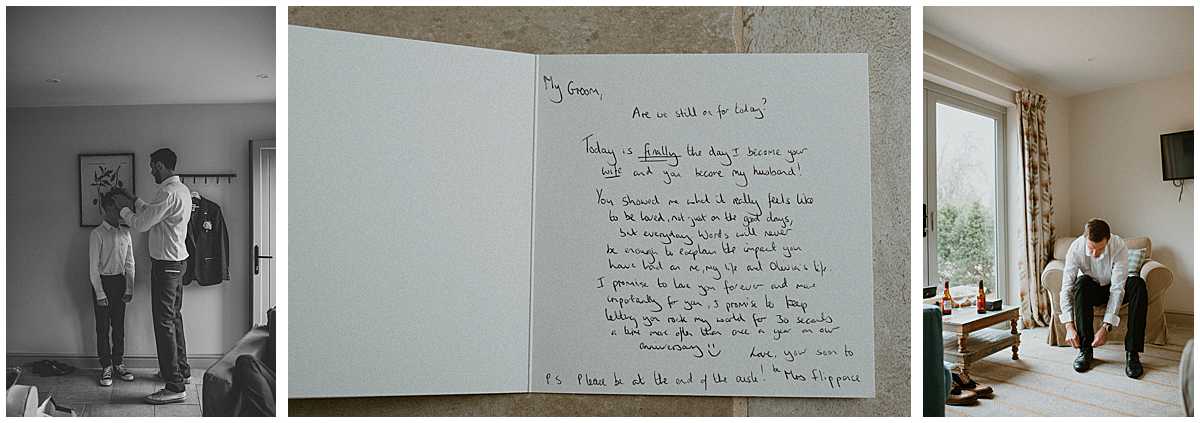 My Groom,
Are we still on for today?
Today is finally the day I become your
wife and you become my husband!
You showed me what it really feels like
to be loved, not just on the good days,
but everyday. Words will never
be enough to explain the impact you
have had on me, my life and Olivia's life.
I promise to love you forever and more
importantly for you, I promise to keep
letting you rock my world for 30 seconds
a time more often than once a year on our
anniversary
Love, your soon to
be Mrs Flippance
P S Please be at the end of the aisle!